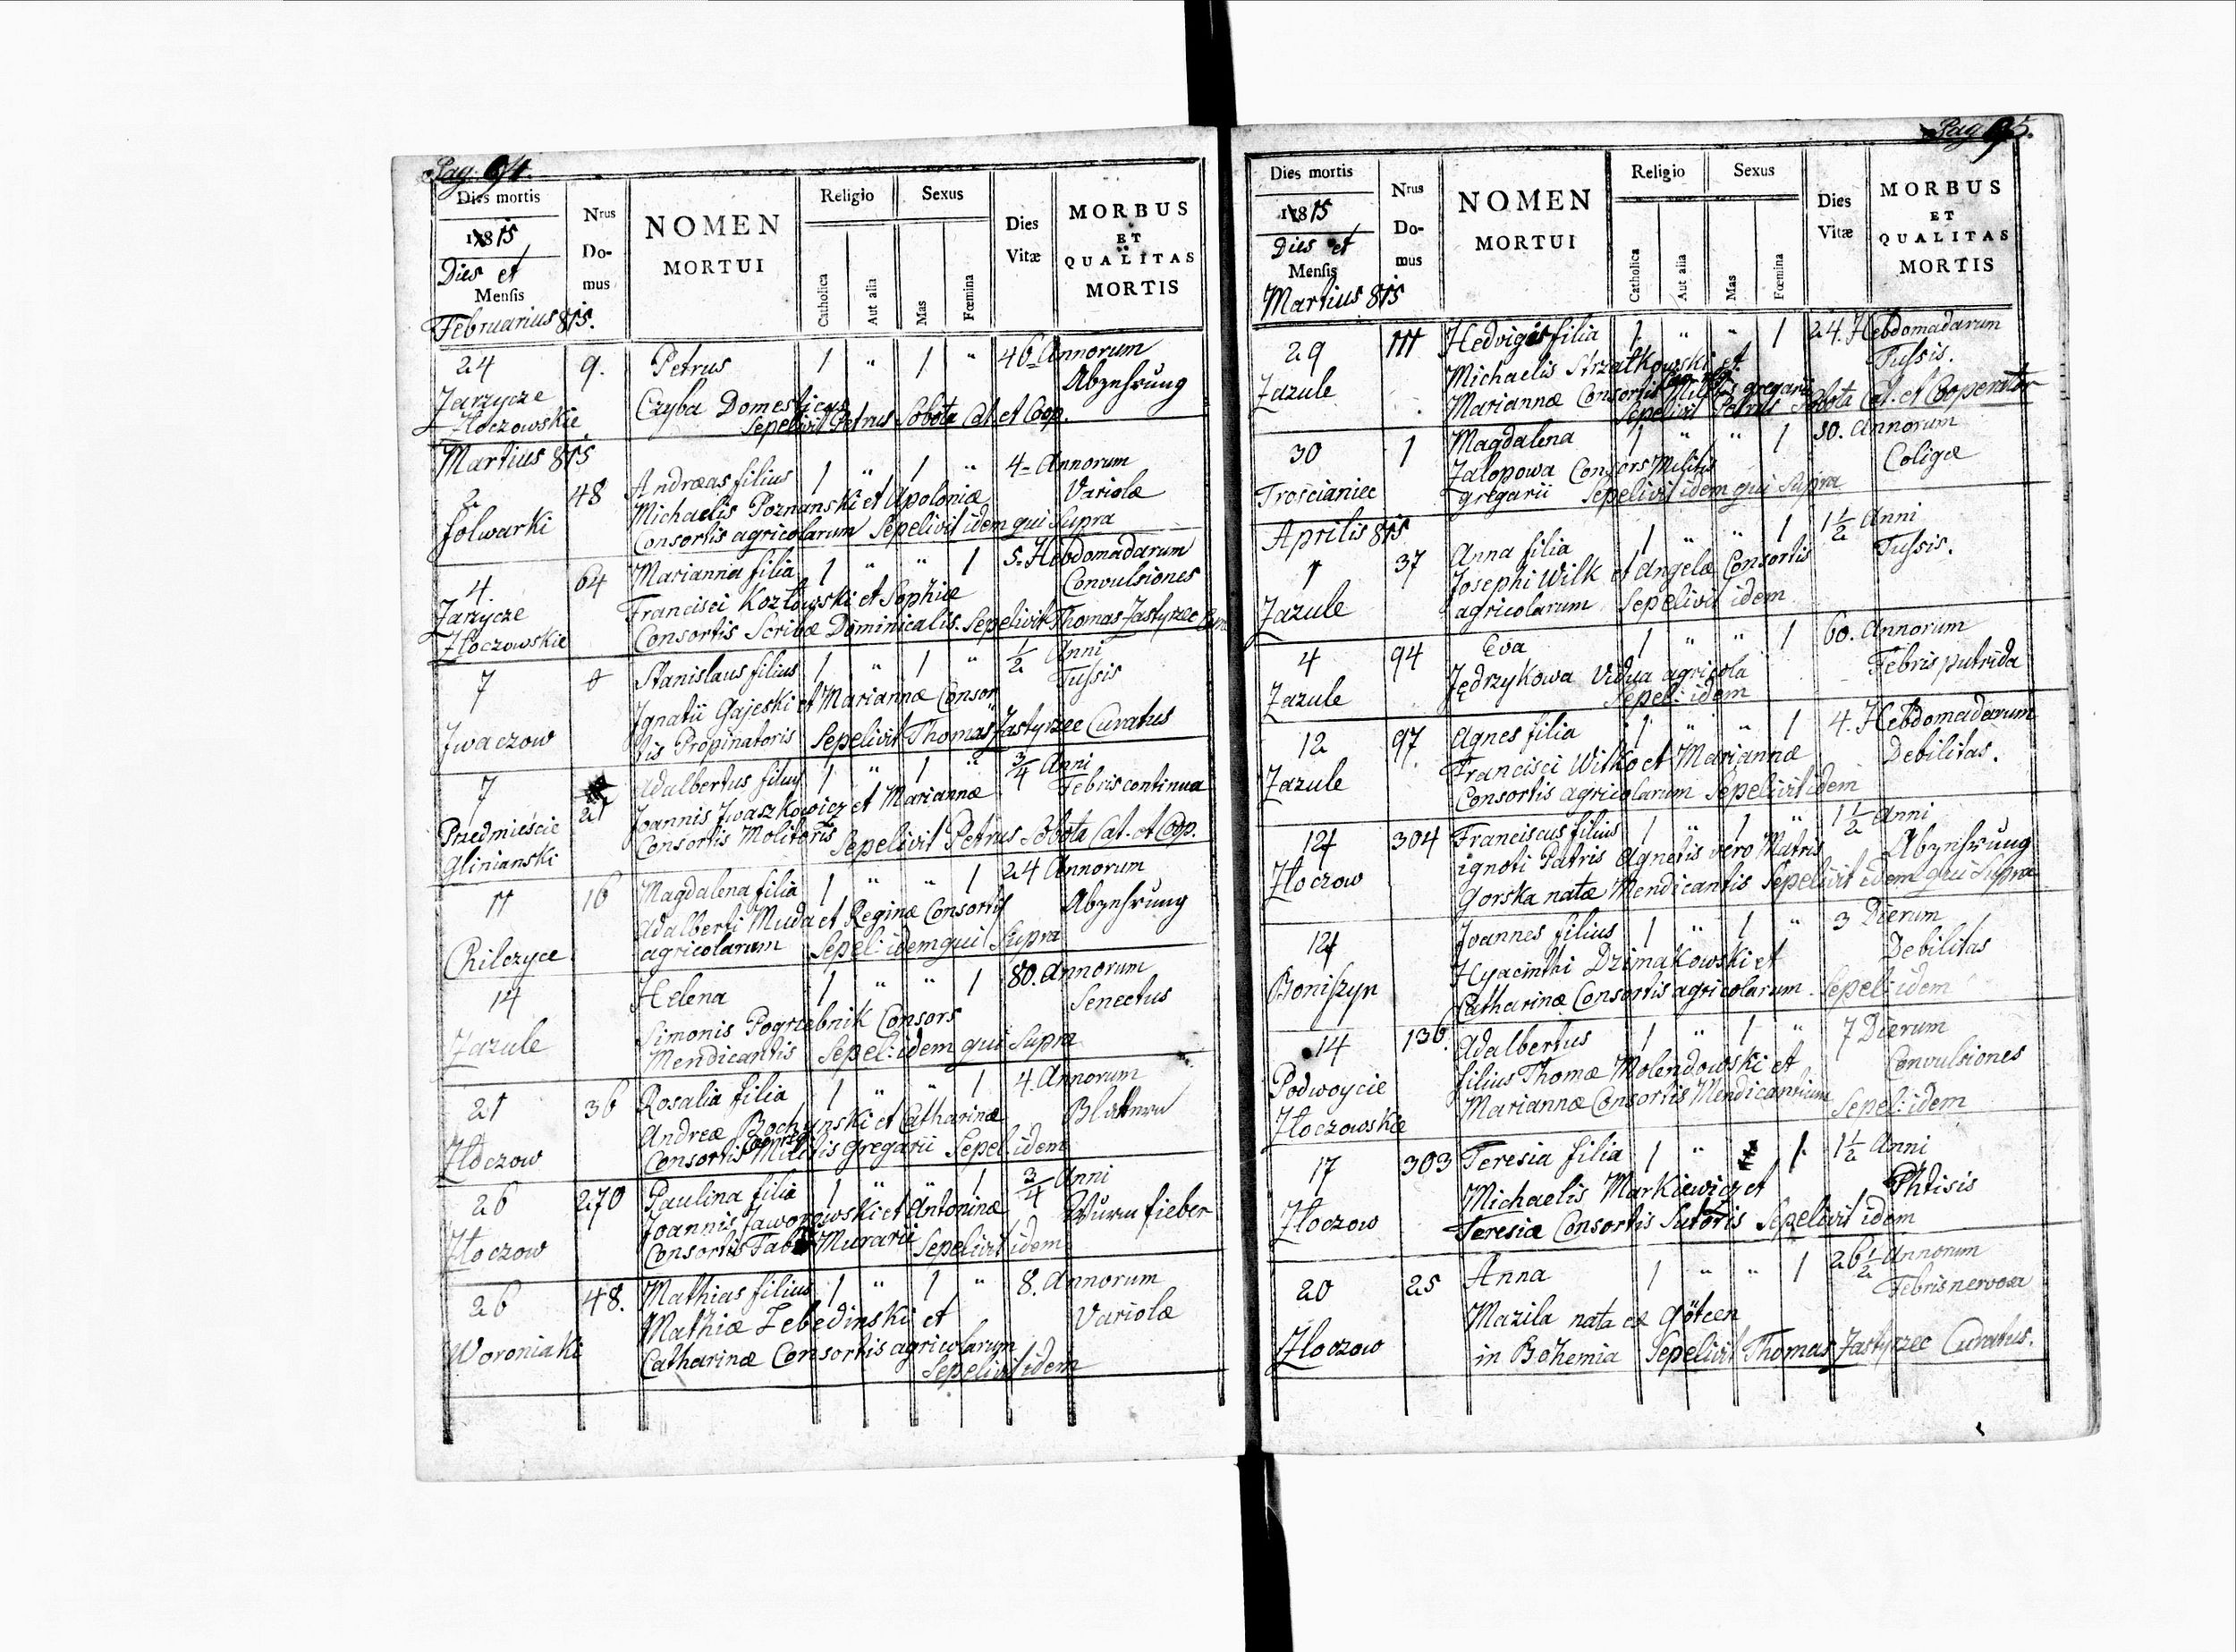 Pag. 94.
Dies mortis
1815
Dies et
Mensis
Februarius 815.
Nrus
Do-
mus
NOMEN
MORTUI
Religio
Catholica
Aut alia
Sexus
Mas
Fœmina
Dies
Vitæ
MORBUS
ET
QUALITAS
MORTIS
24 9. Petrus 1 " 1 " 46 Annorum
Zarzycze Czyba Domesticus Abzehrung
Złoczowskie Sepelivit Petrus Sobota Cat. et Coop.
Martius 815
2 48 Andræas filius 1 " 1 " 4 = Annorum
folwarki Michaelis Poznanski et Apoloniæ Variolæ
Consortis agricolarum Sepelivit idem qui Supra
4. 64 Marianna filia 1 " " 1 5. Hebdomadarum
Zarzycze Francisci Kozłowski et Sophiæ Convulsiones
Złoczowskie Consortis Scribæ Dominicalis. Sepelivit Thomas Jastyrzec
7 Stanislaus filius 1 " 1 " 1/2 Anni
Ignatii Gajeski et Mariannæ Consor Tussis
Jwaczow tis Propinatoris Sepelivit Thomas Jastyrzec Curatus
7 21 Adalbertus filius 1 " 1 " 3/4 Anni
Joannis Jwaszkowicz et Mariannæ Febris continua
Przedmieście Consortis Molitoris Sepelivit Petrus Sobota Cat. et Cop.
Glinianski
11 16 Magdalena filia 1 " " 1 24 Annorum
Adalberti Muda et Reginæ Consortis Abzehrung
Chilczyce agricolarum Sepel: idem qui Supra
14 Helena 1 " " 1 80. Annorum
Simonis Pogrzebnik Consors Senectus
Zazule Mendicantis Sepel: idem qui Supra
21 36 Rosalia filia 1 " " 1 4. Annorum
Andreæ Bochynski et Catharinæ Blattern
Złoczow Consortis Militis gregarii Sepel. idem
26 270 Paulina filia 1 " " 1 3/4 Anni
Joannis Jaworowski et Antoninæ Wurmfieber
Złoczow Consortis Fabri Murarii Sepelivit idem
26 48. Mathias filius 1 " 1 " 8. Annorum
Mathiæ Lebedinski et Variolæ
Woroniaki Catharinæ Consortis agricolarum
Sepelivit idem
Pag 95.
Dies mortis
1815
Dies et
Mensis
Martius 815
Nrus
Do-
mus
NOMEN
MORTUI
Religio
Catholica
Aut alia
Sexus
Mas
Fœmina
Dies
Vitæ
MORBUS
ET
QUALITAS
MORTIS
29 111 Hedvigis filia 1 " " 1 24. Hebdomadarum
Michaelis Strzałkowski et Tussis.
Zazule Mariannæ Consortis Militis gregarii
Sepelivit Petrus Sobota Cat. et Cooperator
30 1 Magdalena 1 " " 1 30. Annorum
Zalopowa Consors Militis Coligæ
Trościaniec gregarii Sepelivit idem qui Supra
Aprilis 815
1 37 Anna filia 1 " " 1 1 1/2 Anni
Josephi Wilk et Angelæ Consortis Tussis.
Zazule agricolarum Sepelivit idem
4 94 Eva 1 " " 1 60. Annorum
Zazule Jędrzykowa Vidua agricola Febris putrida
Sepel: idem
12 97 Agnes filia 1 " " 1 4. Hebdomadarum
Zazule Francisci Wilko et Mariannæ Debilitas.
Consortis agricolarum Sepelivit idem
12 304 Franciscus filius 1 " 1 " 1 1/2 Anni
ignoti Patris Agnetis vero Matris Abzehrung
Złoczow Gorska natæ Mendicantis Sepelivit idem qui Supra
12 Joannes filius 1 " 1 " 3 Dierum
Hyacinthi Dzimakowski et Debilitas
Boniszyn Catharinæ Consortis agricolarum. Sepel: idem
14 136 Adalbertus 1 " 1 " 7 Dierum
Podwoycie filius Thomæ Molendowski et Convulsiones
Złoczowskie Mariannæ Consortis Mendicantium Sepel: idem
17 303 Teresia filia 1 " 1. 1 1/2 Anni
Michaelis Markiewicz et Phtisis
Złoczow Teresiæ Consortis Sutoris Sepelivit idem
20 25 Anna 1 " " 1 26 1/2 Annorum
Mazila nata ex Götcen Febris nervosa
Złoczow in Bohemia Sepelivit Thomas Jastyrzec Curatus.